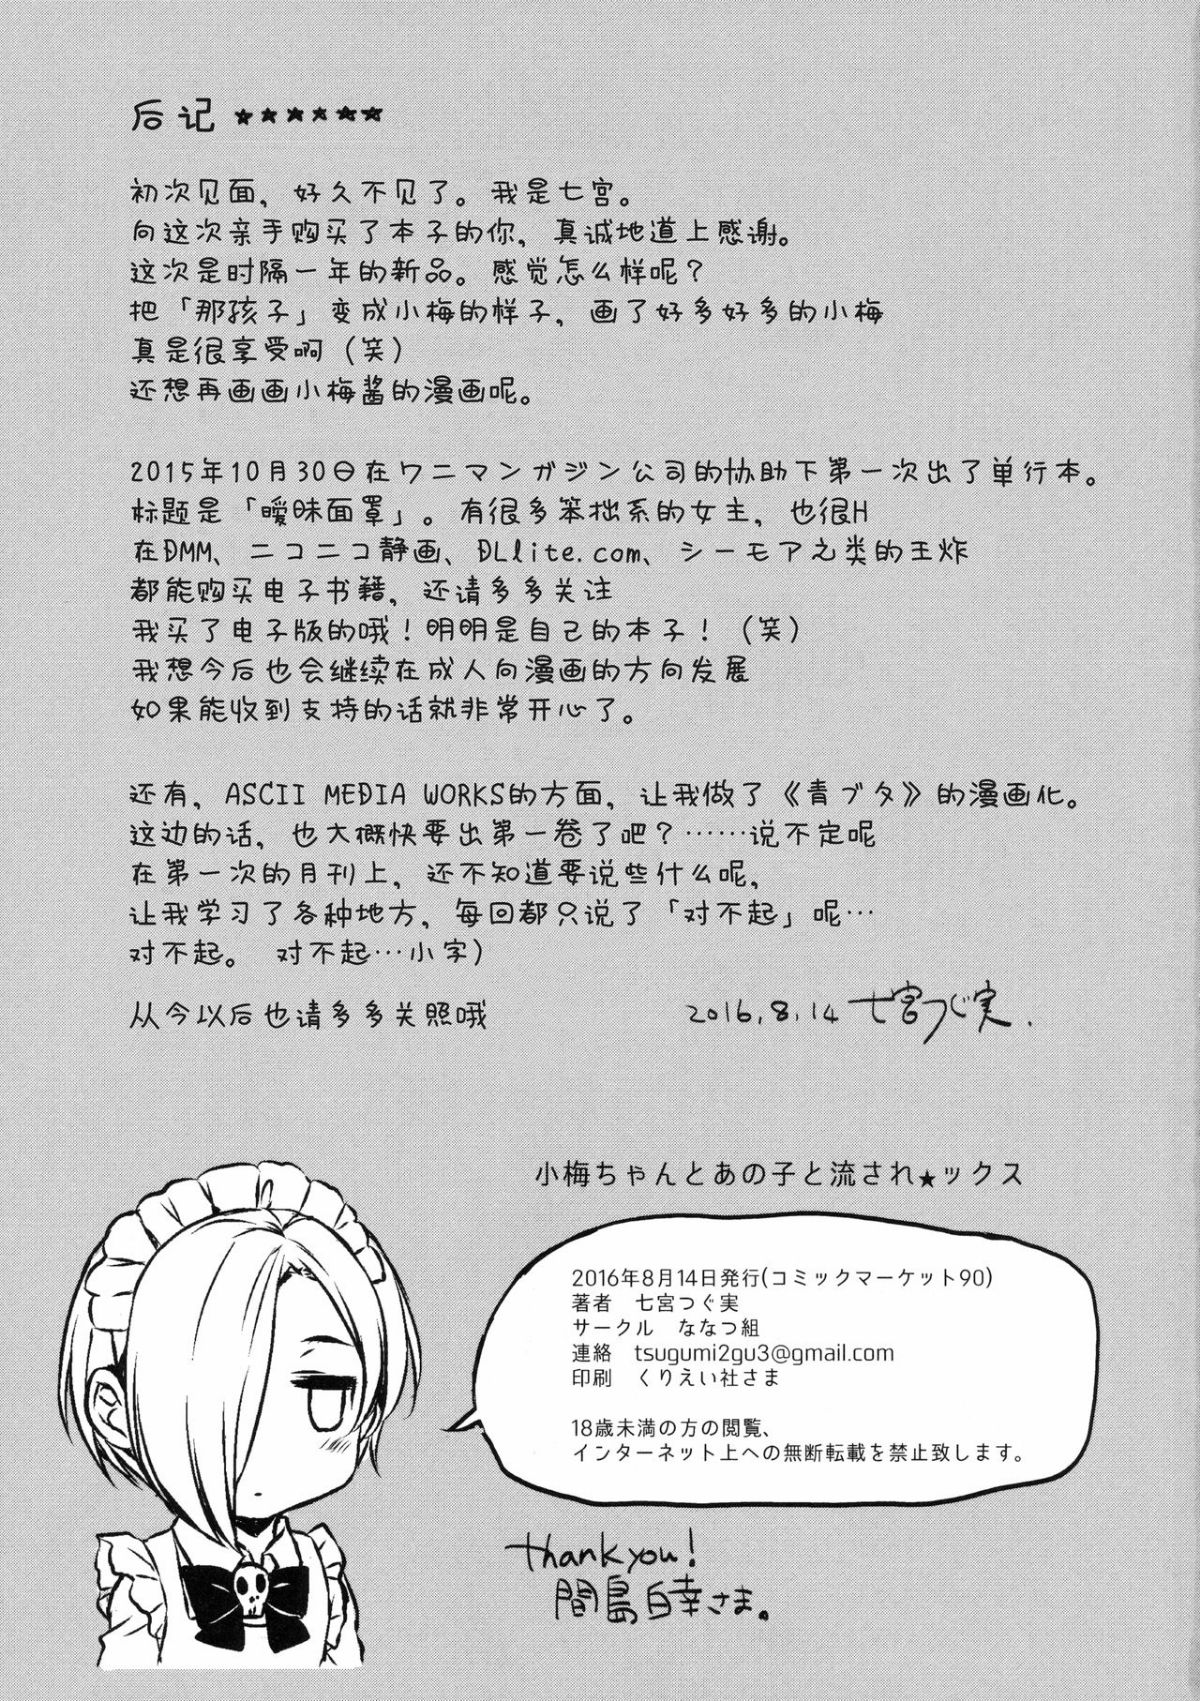 后记 ★★★★★★
初次见面，好久不见了。我是七宫。
向这次亲手购买了本子的你，真诚地道上感谢。
这次是时隔一年的新品。感觉怎么样呢？
把「那孩子」变成小梅的样子，画了好多好多的小梅
真是很享受啊（笑）
还想再画画小梅酱的漫画呢。
2015年10月30日在ワニマンガジン公司的协助下第一次出了单行本。
标题是「暧昧面罩」。有很多笨拙系的女主，也很H
在DMM、ニコニコ静画、DLlite.com、シーモア之类的王炸
都能购买电子书籍，还请多多关注
我买了电子版的哦！明明是自己的本子！（笑）
我想今后也会继续在成人向漫画的方向发展
如果能收到支持的话就非常开心了。
还有，ASCII MEDIA WORKS的方面，让我做了《青ブタ》的漫画化。
这边的话，也大概快要出第一卷了吧？……说不定呢
在第一次的月刊上，还不知道要说些什么呢，
让我学习了各种地方，每回都只说了「对不起」呢…
对不起。 对不起…小字）
从今以后也请多多关照哦
2016.8.14 七宮つぐ実.
小梅ちゃんとあの子と流され★ックス
2016年8月14日発行(コミックマーケット90)
著者　七宮つぐ実
サークル　ななつ組
連絡　tsugumi2gu3@gmail.com
印刷　くりえい社さま
18歳未満の方の閲覧、
インターネット上への無断転載を禁止致します。
thank you!
間島白幸さま。